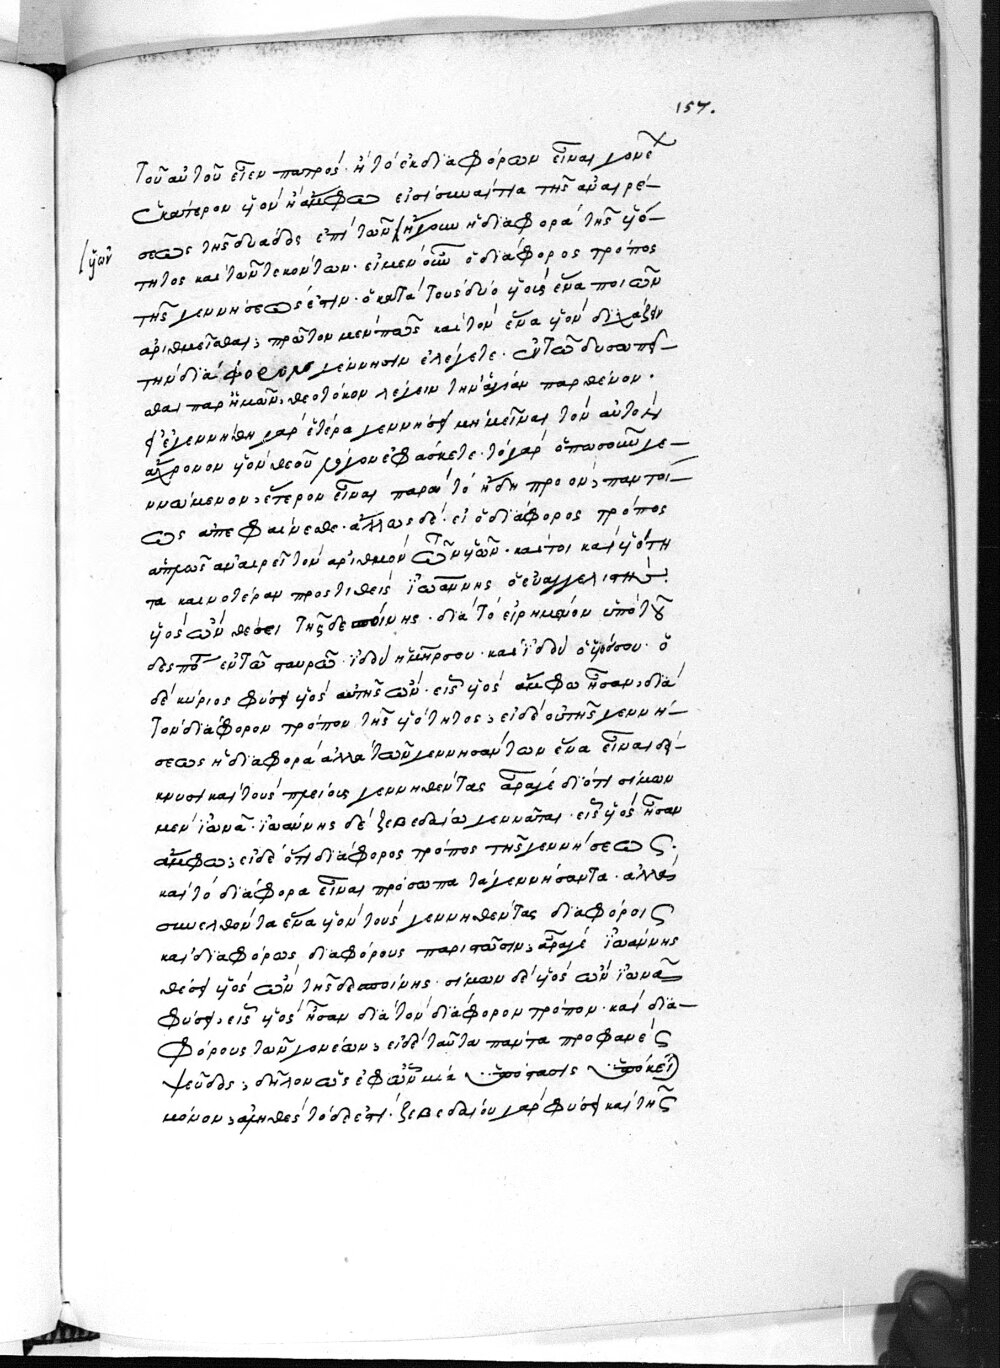 157.
τοῦ αὐτοῦ εἶεν πατρός· ἢ τὸ ἐκ διαφόρων εἶναι γονέ
ἑκάτερον υἱὸν ἢ ἄμφω εἰσὶ συναίτια τῆς ἀναιρέ-
σεως τῆς δυάδος ἐπὶ τῶν ἤγουν ἡ διαφορὰ τῆς υἱό-
υἱῶν
τητος καὶ τῶν τεκόντων· εἰ μὲν οὖν ὁ διάφορος τρόπος
τῆς γεννήσεως ἐστιν· ὁ κατὰ τοὺς δύο υἱοὺς ἕνα ποιῶν
ἀριθμεῖσθαι, πρῶτον μὲν πῶς καὶ τὸν ἕνα υἱὸν
τὴν διάφορον γέννησιν ἐλέγετε·
σθαι παρ' ἡμῶν, θεοτόκον λέγειν τὴν ἁγίαν παρθένον·
ἐγεννήθη γὰρ ἑτέρα γεννήσει μὴ μεῖναι τὸν αὐτὸν
ἄχρονον υἱὸν θεοῦ λόγον ἐφάσκετε· τὸ γὰρ ὁπωσοῦν γε-
ννώμενον, ἕτερον εἶναι παρὰ τὸ ἤδη προόν, παντοί-
ως ἀπεφαίνεσθε· ἄλλως δὲ· εἰ ὁ διάφορος τρόπος
ἁπλῶς ἀναιρεῖ τὸν ἀριθμὸν τῶν υἱῶν· καίτοι καὶ υἱότη
τα καινοτέραν προστιθεὶς ἰωάννης ὁ εὐαγγελιστὴς
υἱὸς ὢν θέσει τῆς δεσποίνης· διὰ τὸ εἰρημένον ὑπὸ τοῦ
δεσπό ἐν τῶ σταυρῶ· ἰδοὺ ἡ μήτηρ σου· καὶ ἰδοὺ ὁ υἱός σου· ὁ
δὲ κύριος φύσει υἱὸς αὐτῆς ὤν· εἷς υἱὸς ἄμφω ἦσαν, διὰ
τὸν διάφορον τρόπον τῆς υἱότητος, εἰ δὲ οὐ τῆς γεννή-
σεως ἡ διαφορὰ ἀλλὰ τῶν γεννησάντων ἕνα εἶναι δεί-
κνυσι καὶ τοὺς πλείους γεννηθέντας ἆρά γε διότι σίμων
μὲν ἰωνᾶ· ἰωάννης δὲ ζεβεδαίω γεννᾶται· εἷς υἱὸς ἦσαν
ἄμφω, εἰ δὲ ὅτι διάφορος τρόπος τῆς γεννήσεως·
καὶ τὸ διάφορα εἶναι πρόσωπα τὰ γεννήσαντα· ἀλλὰ
συνελθόντα ἕνα υἱὸν τοὺς γεννηθέντας διαφόροις
καὶ διαφόρως διαφόρους παριστῶσιν, ἆρά γε ἰωάννης
θέσει υἱὸς ὢν τῆς δεσποίνης· σίμων δὲ υἱὸς ὢν ἰωνᾶ
φύσει, εἷς υἱὸς ἦσαν διὰ τὸν διάφορον τρόπον· καὶ δια-
φόρους τῶν γονέων, εἰ δὲ ταῦτα πάντα προφανὲς
ψεῦδος, δῆλον ὡς ἐφ' ὧν μία ὑπόστασις ὑπόκει
μόνον, ἀληθὲς τόδε ἐστί· ζεβεδαίου γὰρ φύσει καὶ τῆς